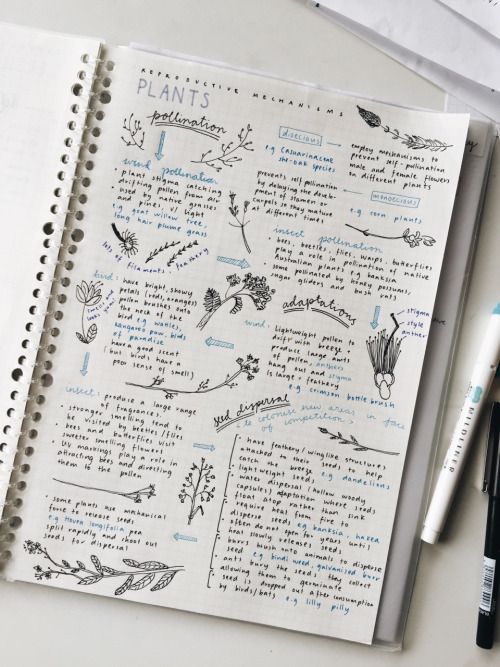 REPRODUCTIVE MECHANISMS
PLANTS
pollination
wind pollination
• plants stigma catching
drifting pollen from air
• used by native grasses
and pollen is light
e.g goat willow tree,
long hair plume grass
lots of filaments - feathery
dioecious
e.g casuarinaceae
she-oak species
employ mechanisms to
prevent self-pollination
male and female flowers
in different plants
monoecious
prevents self pollination
by delaying the develop-
ment of stamen or
carpels so they mature
at different times
e.g corn plants
insect pollination
• bees, beetles, flies, wasps, butterflies
play a role in pollination of native
Australian plants e.g banksia
• some pollinated by honey possums,
sugar gliders and bush rats
adaptations
bird: have bright, showy
petals (reds, oranges)
pollen brushes onto
the neck of the
bird e.g wattles,
kangaroo paw, birds
of paradise
• have no scent
(but birds have a
poor sense of smell)
wind: lightweight pollen to
drift with breeze
produce large amts
of pollen, anthers
hang out and stigma
is large + feathery
e.g crimson bottle brush
stigma
style
anther
insect: produce a large range
of fragrances
• stronger smelling tend to
be visited by beetles/flies
• bees and butterflies visit
sweeter smelling flowers
• UV markings play a role in
attracting bees and directing
them to the pollen
seed dispersal
↳ to colonise new areas in face
of competition
• have feathery/winglike structures
attached to their seeds to help
catch the breeze e.g dandelions
• lightweight seeds
• water dispersal (hollow woody
capsules) adaptation where seeds
float atop rather than sink
• require heat from fire to
disperse seeds e.g banksia, hakea
• often do not open for years until
heat slowly releases seeds
• burrs hook onto animals to disperse
seed e.g bindi weed, galvanised burr
• ants bury the seeds they collect
allowing them to germinate
• seed is dropped out after consumption
by birds/bats e.g lilly pilly
• some plants use mechanical
force to release seeds
e.g Hovea longifolia pea
split rapidly and shoot out
seeds for dispersal
MILDLINER